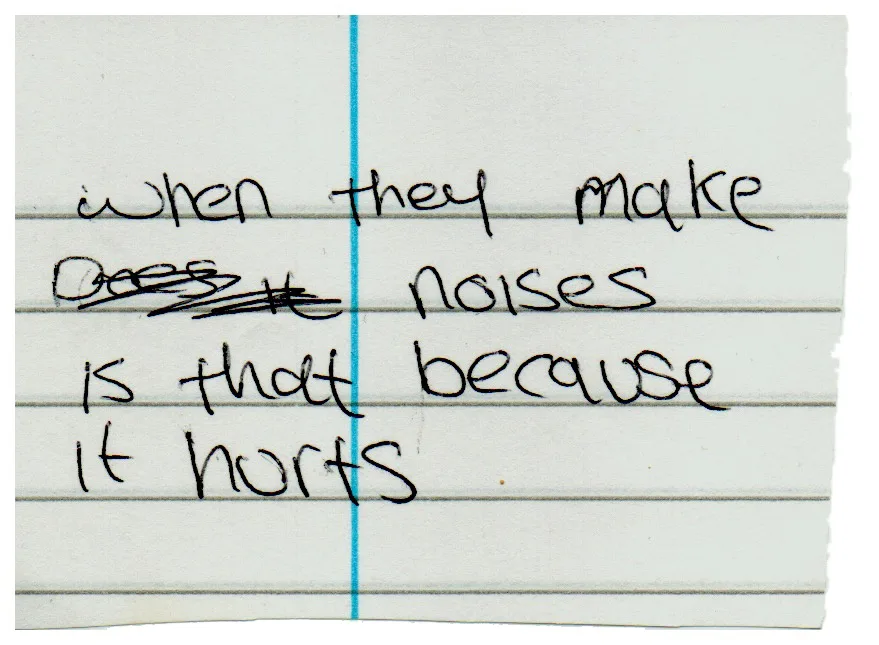 when they make
Does it noises
is that because
it hurts